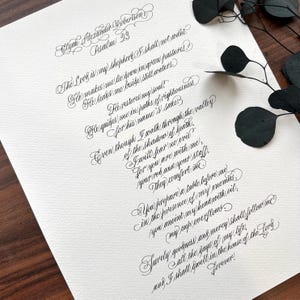 Elijah Alexander Robertson
Psalm 23
The Lord is my shepherd, I shall not want.
He makes me lie down in green pastures
He leads me beside still waters
He restores my soul
He guides me in paths of righteousness
for his name's sake
Even though I walk through the valley
of the shadow of death,
I will fear no evil
for you are with me
your rod and your staff,
They comfort me.
You prepare a table before me
in the presence of my enemies
you anoint my head with oil,
my cup overflows
Surely goodness and mercy shall follow me
all the days of my life,
and I shall dwell in the house of the Lord
forever.